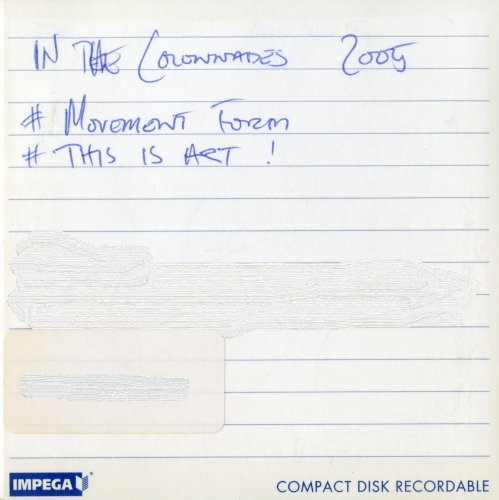 IN THE COLONNADES 2005
# MOVEMENT FORM
# THIS IS ART !
IMPEGA
COMPACT DISK RECORDABLE